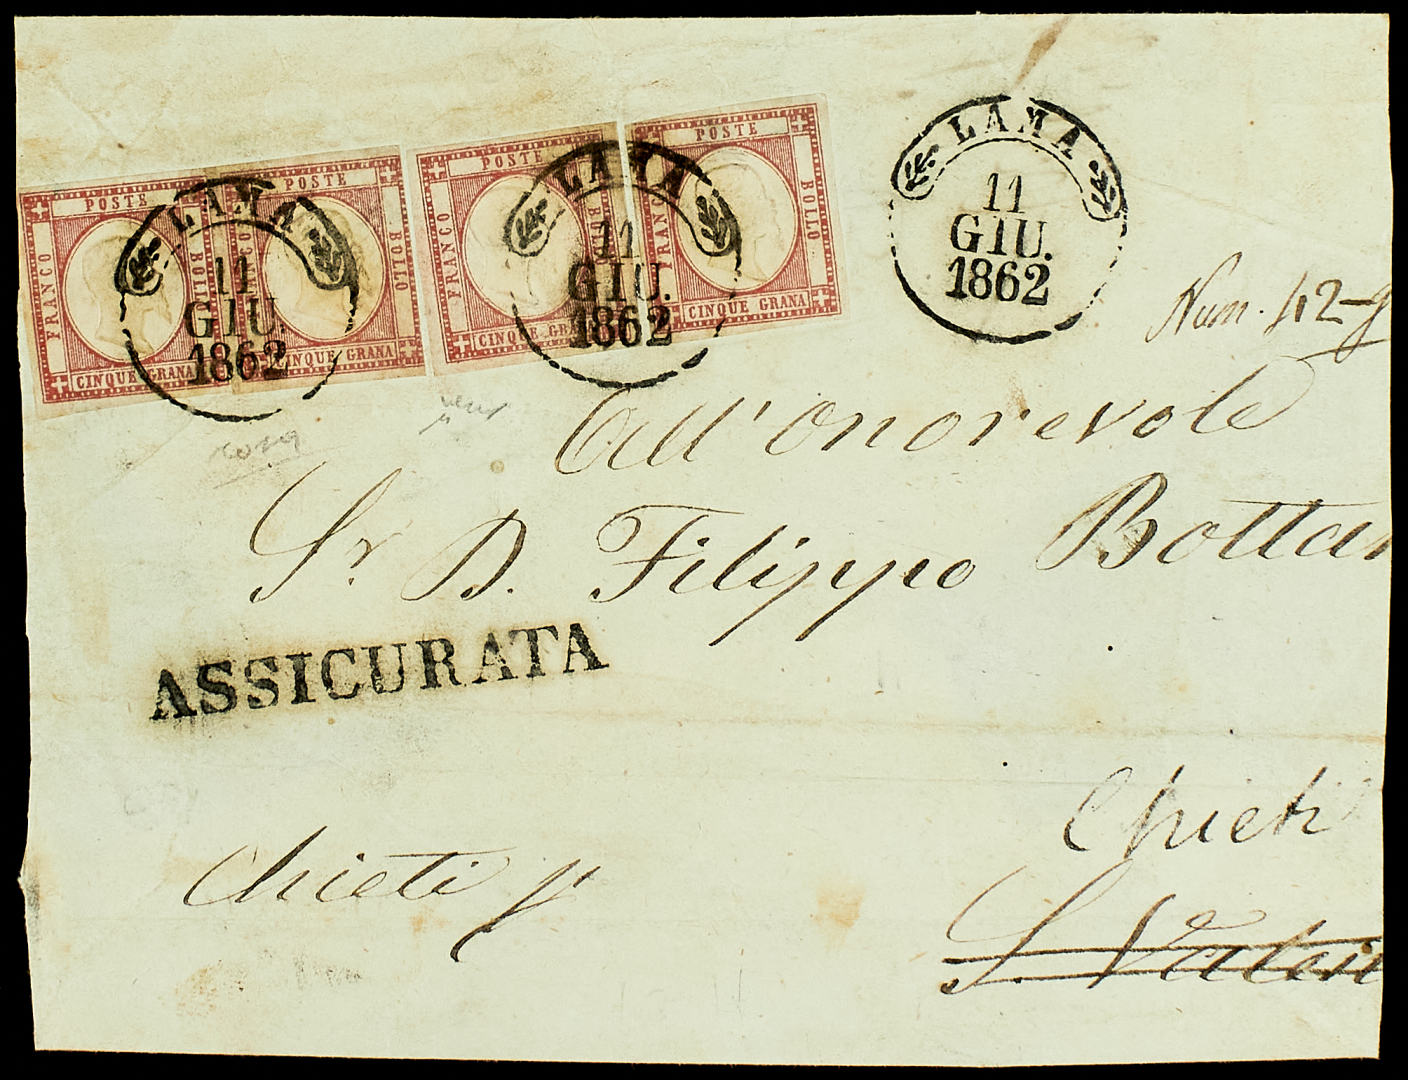 POSTE FRANCO BOLLO CINQUE GRANA
POSTE FRANCO BOLLO CINQUE GRANA
POSTE FRANCO BOLLO CINQUE GRANA
POSTE FRANCO BOLLO CINQUE GRANA
LAMA
11
GIU.
1862
LAMA
11
GIU.
1862
LAMA
11
GIU.
1862
Num. 42-
All'Onorevole
Sr. D. Filippo Bottar
ASSICURATA
Chieti
Chieti p'
S. Valen